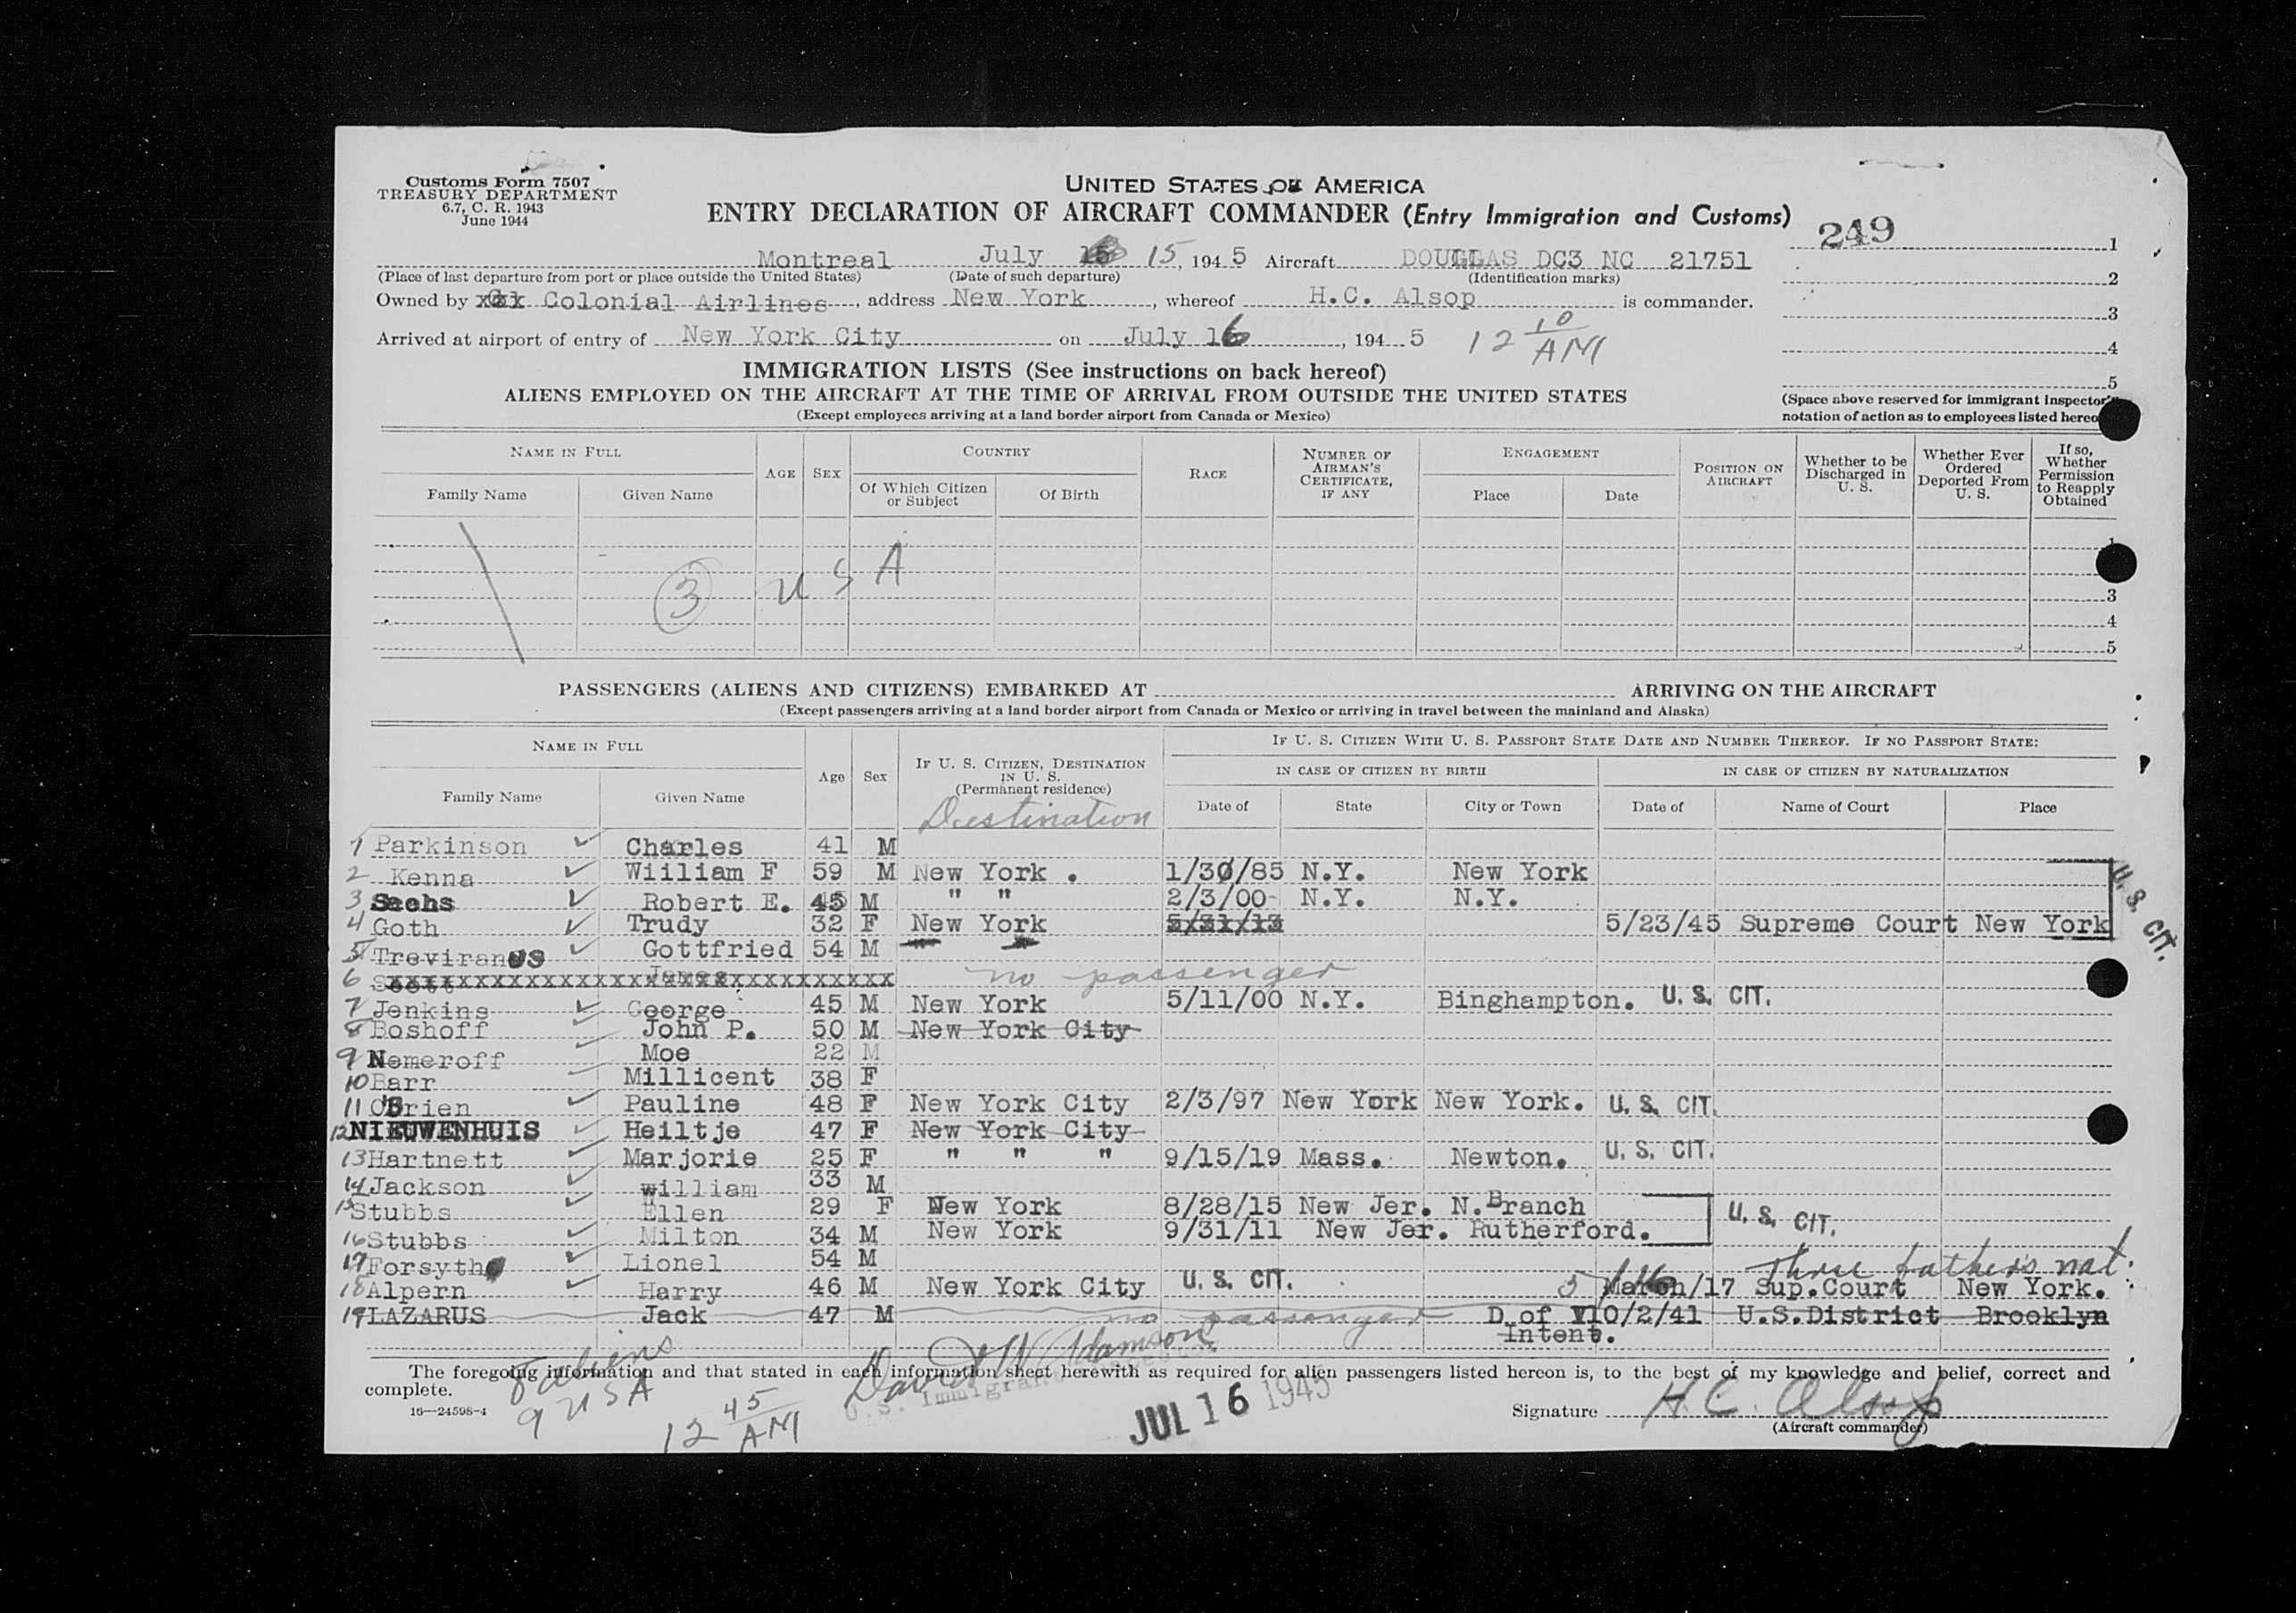 Customs Form 7507
TREASURY DEPARTMENT
6.7, C. R. 1943
June 1944
UNITED STATES OF AMERICA
ENTRY DECLARATION OF AIRCRAFT COMMANDER (Entry Immigration and Customs)
249
1
2
3
4
5
Montreal July 15, 194 5 Aircraft DOUGLAS DC3 NC 21751
(Place of last departure from port or place outside the United States) (Date of such departure) (Identification marks)
Owned by Colonial Airlines, address New York, whereof H.C. Alsop is commander.
Arrived at airport of entry of New York City on July 16, 194 5 12 10 AM
IMMIGRATION LISTS (See instructions on back hereof)
ALIENS EMPLOYED ON THE AIRCRAFT AT THE TIME OF ARRIVAL FROM OUTSIDE THE UNITED STATES
(Except employees arriving at a land border airport from Canada or Mexico)
(Space above reserved for immigrant inspector's
notation of action as to employees listed hereo
NAME IN FULL AGE SEX COUNTRY RACE NUMBER OF AIRMAN'S CERTIFICATE, IF ANY ENGAGEMENT POSITION ON AIRCRAFT Whether to be Discharged in U. S. Whether Ever Ordered Deported From U. S. If so, Whether Permission to Reapply Obtained
Family Name Given Name Of Which Citizen or Subject Of Birth Place Date
1
3 USA
3
4
5
PASSENGERS (ALIENS AND CITIZENS) EMBARKED AT ARRIVING ON THE AIRCRAFT
(Except passengers arriving at a land border airport from Canada or Mexico or arriving in travel between the mainland and Alaska)
NAME IN FULL Age Sex IF U. S. CITIZEN, DESTINATION IN U. S. (Permanent residence) IF U. S. CITIZEN WITH U. S. PASSPORT STATE DATE AND NUMBER THEREOF. IF NO PASSPORT STATE:
IN CASE OF CITIZEN BY BIRTH IN CASE OF CITIZEN BY NATURALIZATION
Family Name Given Name Date of State City or Town Date of Name of Court Place
Destination
1 Parkinson Charles 41 M
2 Kenna Wiiliam F 59 M New York . 1/30/85 N.Y. New York
3 Sachs Robert E. 45 M " " 2/3/00 N.Y. N.Y.
4 Goth Trudy 32 F New York 5/31/13 5/23/45 Supreme Court New York
U. S. CIT.
5 Treviranus Gottfried 54 M
6 Scott James xxxxxxxxxxxxxxxxxxxxxxxxxxxxx no passenger
7 Jenkins George 45 M New York 5/11/00 N.Y. Binghampton. U. S. CIT.
8 Boshoff John P. 50 M New York City
9 Nemeroff Moe 22 M
10 Barr Millicent 38 F
11 O'Brien Pauline 48 F New York City 2/3/97 New York New York. U. S. CIT.
12 NIEUWENHUIS Heiltje 47 F New York City
13 Hartnett Marjorie 25 F " " " 9/15/19 Mass. Newton. U. S. CIT.
14 Jackson william 33 M
15 Stubbs Ellen 29 F New York 8/28/15 New Jer. N.Branch
16 Stubbs Milton 34 M New York 9/31/11 New Jer. Rutherford.
U. S. CIT.
17 Forsyth Lionel 54 M
thru father's nat.
18 Alpern Harry 46 M New York City U. S. CIT. March/17 Sup.Court New York.
19 LAZARUS Jack 47 M no passenger D of 10/2/41 U.S.District Brooklyn
Intent.
The foregoing information and that stated in each information sheet herewith as required for alien passengers listed hereon is, to the best of my knowledge and belief, correct and
complete.
aliens
9 USA
12 45 AM
David W Adamson
U.S. Immigrant
JUL 16 1945
16—24598-4
Signature H.C. Alsop
(Aircraft commander)